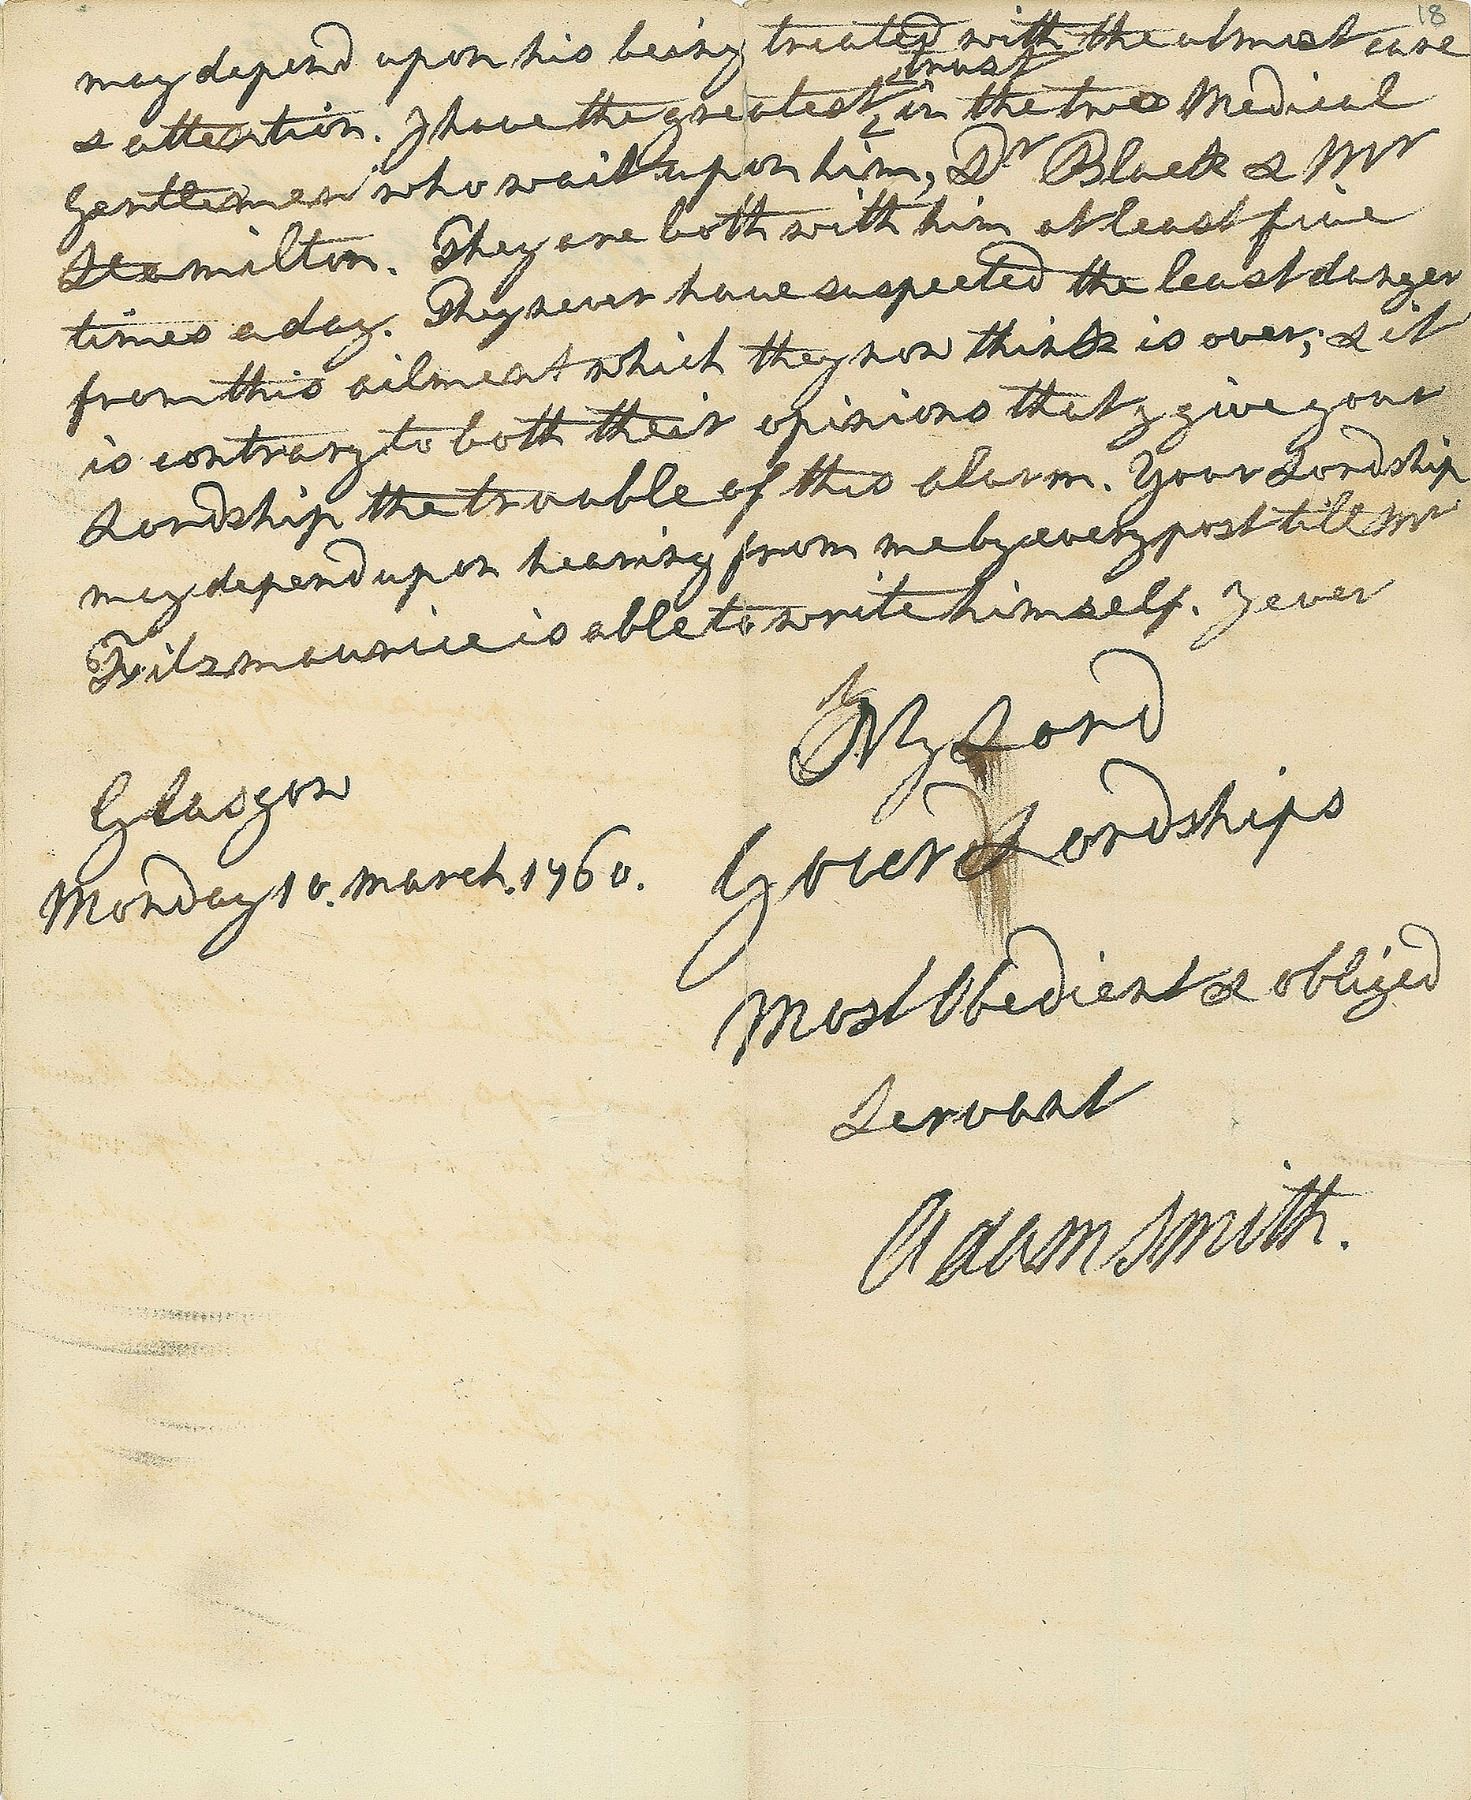 18
may depend upon his being treated with the utmost care
trust
& attention. I have the greatest ^ in the two Medical
Gentlemen who wait upon him, Dr Black & Mr
Hamilton. They are both with him at least five
times a day. They never have suspected the least danger
from this ailment which they now think is over; & it
is contrary to both their opinions that I give your
Lordship the trouble of this alarm. Your Lordship
may depend upon hearing from me by every post till Mr
Fitzmaurice is able to write himself. I ever
My Lord
Your Lordships
Most Obedient & obliged
Servant
Adam Smith.
Glasgow
Monday 10. March. 1760.